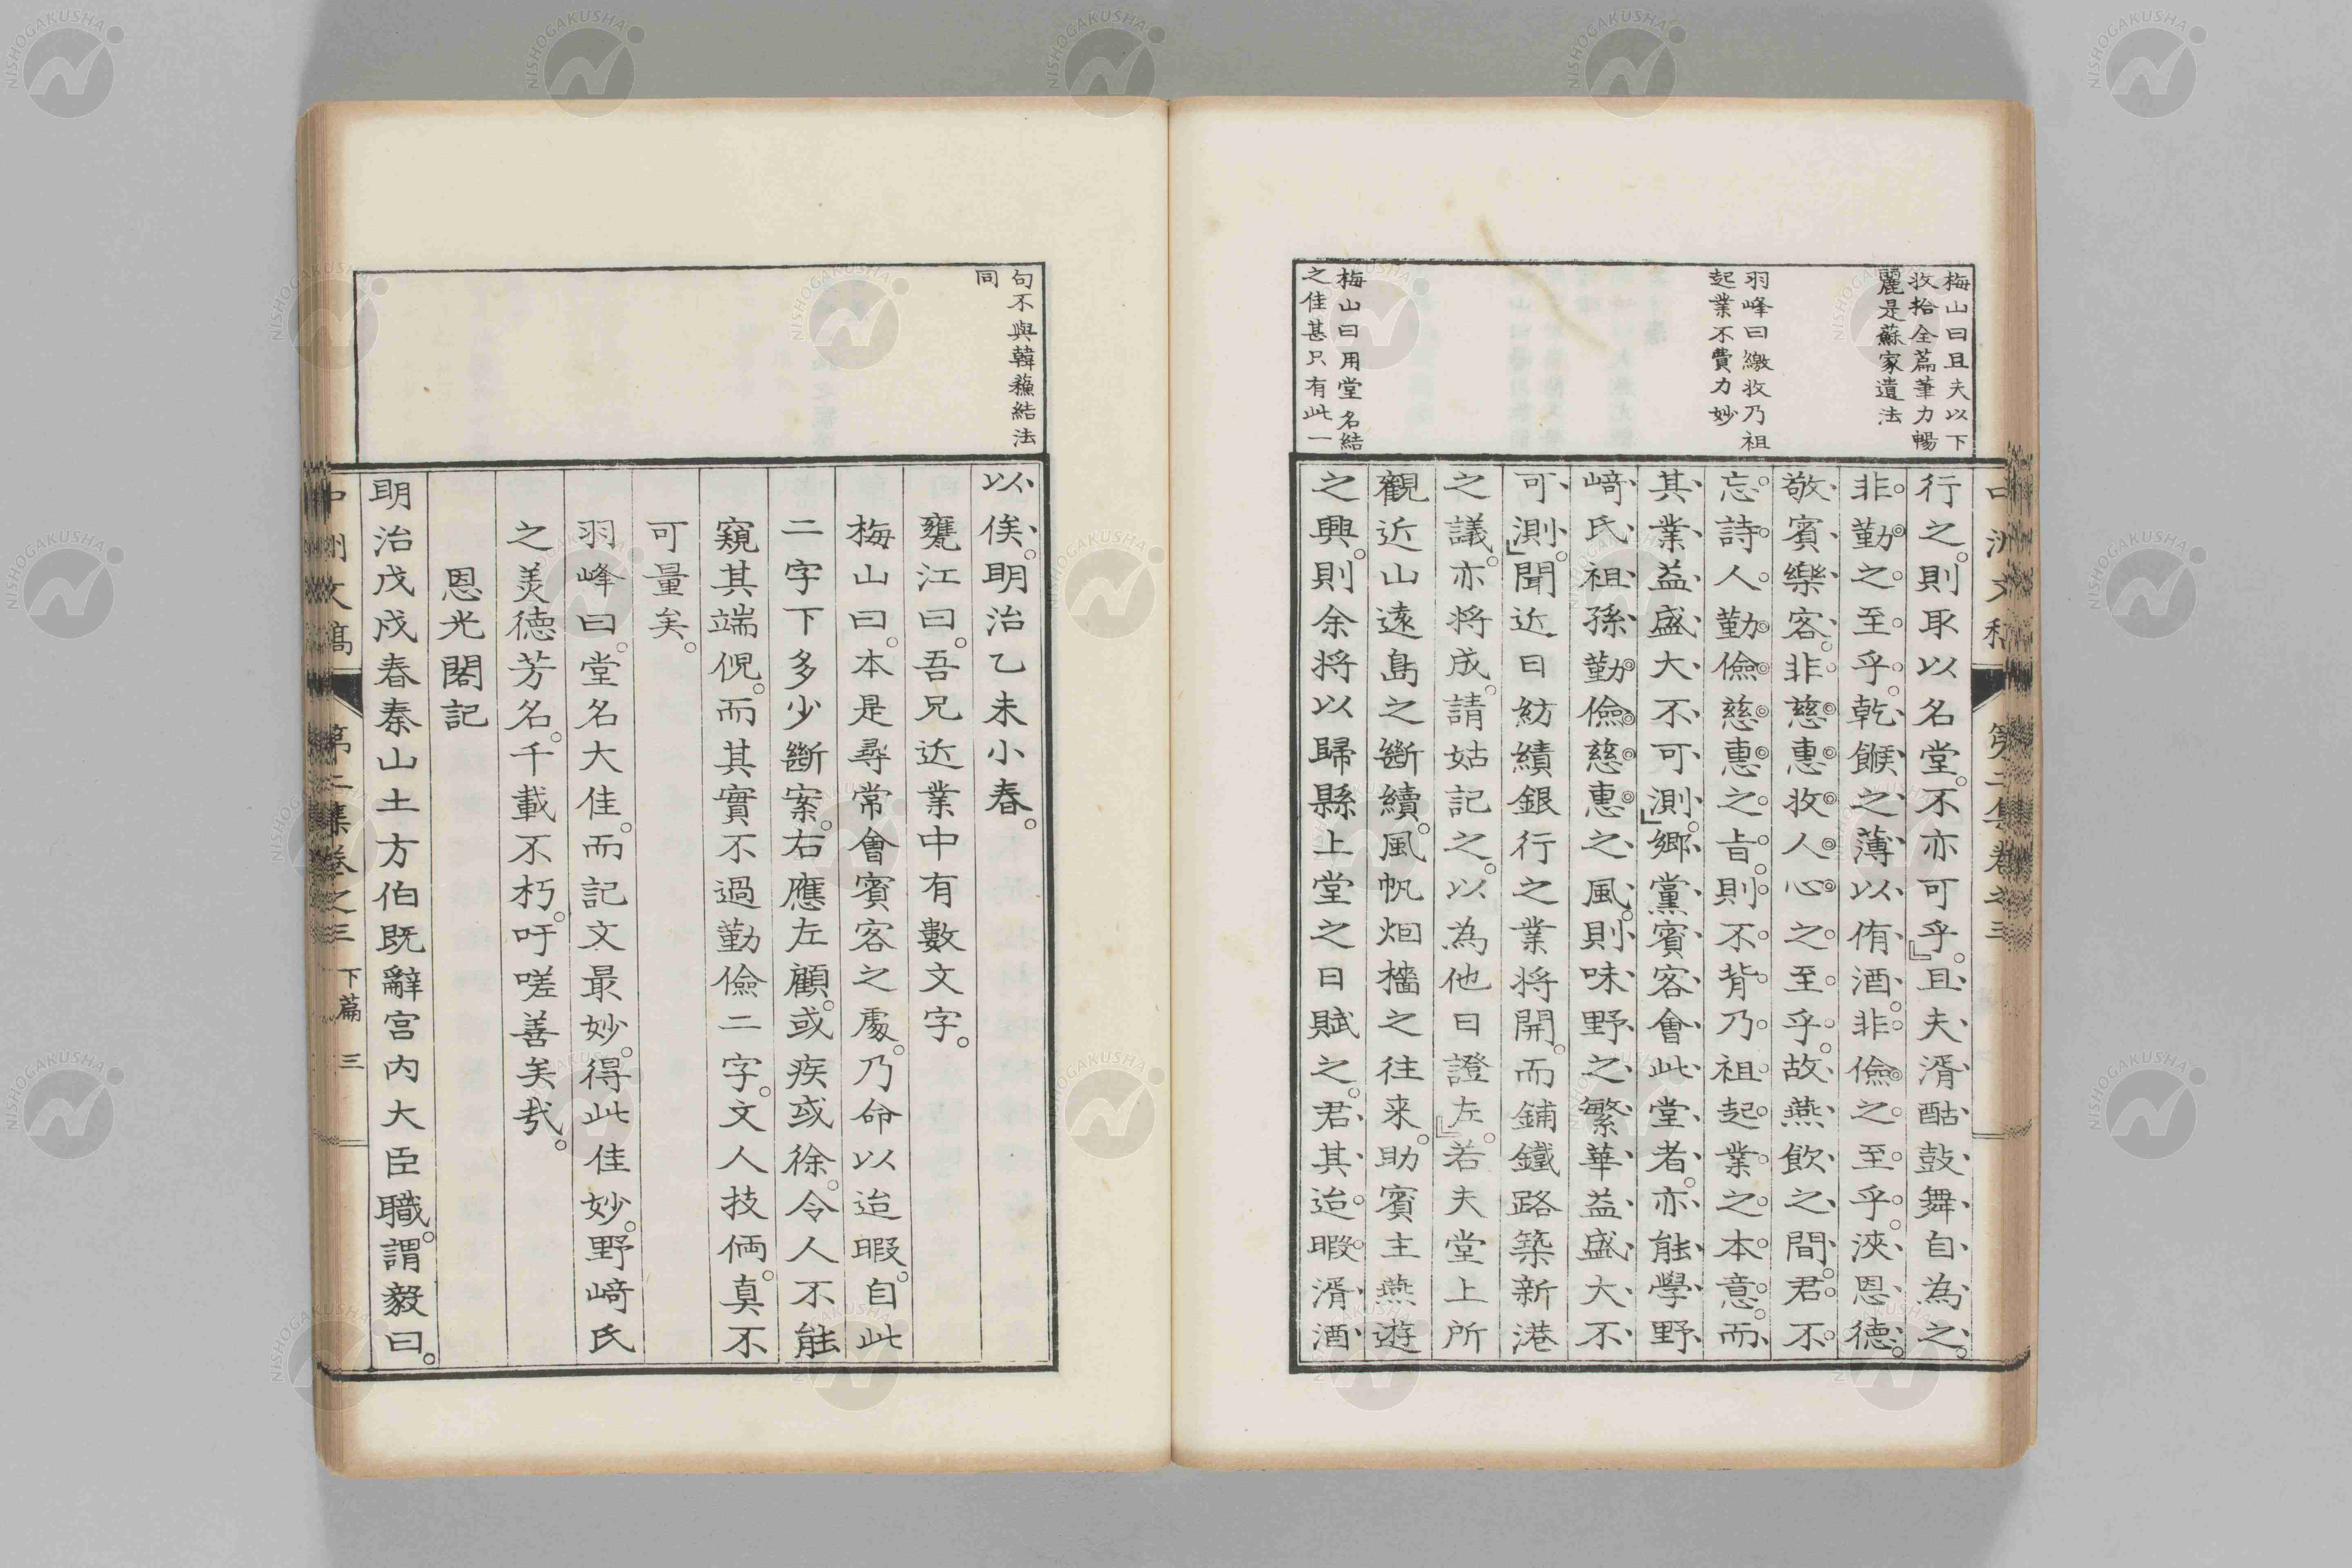 梅山曰且夫以下
收拾全篇筆力暢
麗是蘇家遺法
羽峰曰繳收乃祖
起業不費力妙
梅山曰用堂名結
之佳甚只有此一
行之。則取以名堂。不亦可乎。且夫湑酤鼓舞自為之。
非勤之至乎。乾餱之薄以侑酒。非儉之至乎。浹恩德。
敬賓樂客。非慈惠收人心之至乎。故燕飲之間。君不
忘詩人勤儉慈惠之旨。則不背乃祖起業之本意。而
其業益盛大不可測。鄉黨賓客會此堂者。亦能學野
﨑氏祖孫勤儉慈惠之風。則味野之繁華益盛大不
可測。聞近日紡績銀行之業將開。而鋪鐵路築新港
之議。亦將成。請姑記之。以為他日證左。若夫堂上所
觀近山遠島之斷續。風帆烟檣之往来。助賓主燕遊
之興。則余将以歸縣上堂之日賦之。君其迨暇湑酒
第二集卷之三
句不與韓蘓結法
同
以俟。明治乙未小春。
甕江曰。吾兄近業中有數文字。
梅山曰。本是尋常會賓客之處。乃命以迨暇。自此
二字下多少斷案。右應左顧。或疾或徐。令人不能
窺其端倪。而其實不過勤儉二字。文人技倆。真不
可量矣。
羽峰曰。堂名大佳。而記文最妙。得此佳妙。野﨑氏
之美德芳名。千載不朽。吁嗟善美哉。
恩光閣記
明治戊戌春秦山土方伯既辭宮内大臣職。謂毅曰。
中洲文稿 第二集卷之三 下篇 三